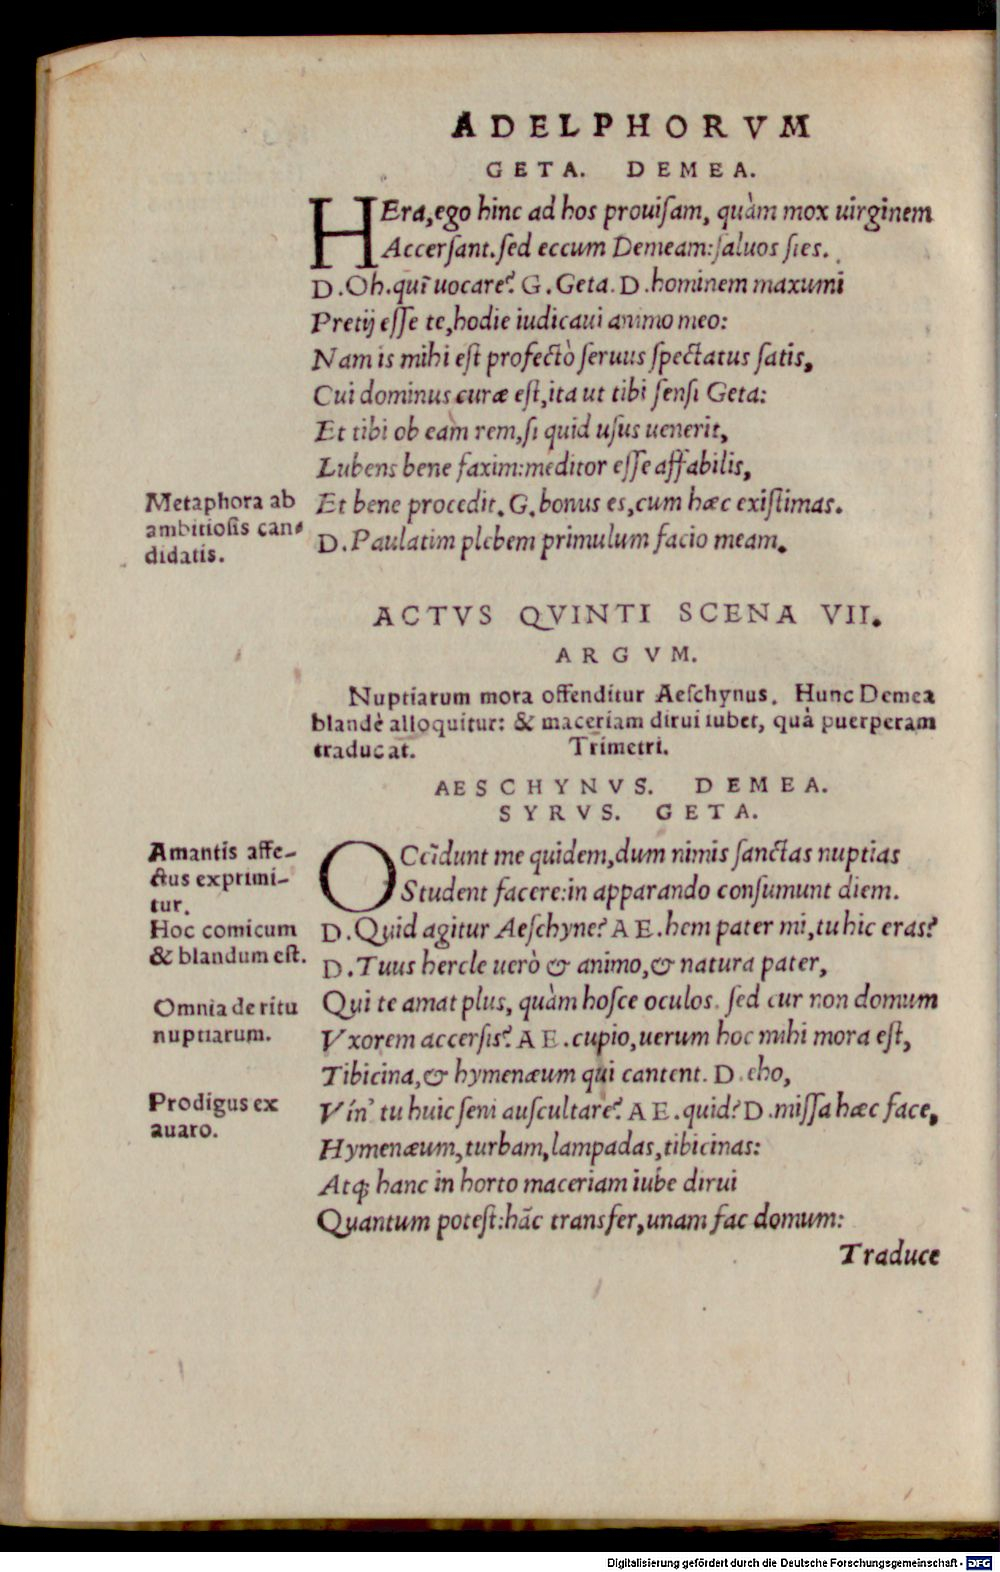 ADELPHORVM
GETA. DEMEA.
HEra,ego hinc ad hos prouiſam, quàm mox uirginem
Accerſant.ſed eccum Demeam:ſaluos ſies.
D.Oh.quī uocare? G.Geta.D.hominem maxumi
Pretij eſſe te,hodie iudicaui animo meo:
Nam is mihi eſt profectò ſeruus ſpectatus ſatis,
Cui dominus curæ eſt,ita ut tibi ſenſi Geta:
Et tibi ob eam rem,ſi quid uſus uenerit,
Lubens bene faxim:meditor eſſe affabilis,
Et bene procedit.G.bonus es,cum hæc exiſtimas.
D.Paulatim plebem primulum facio meam.
Metaphora ab
ambitioſis can=
didatis.
ACTVS QVINTI SCENA VII.
ARGVM.
Nuptiarum mora offenditur Aeſchynus. Hunc Demea
blandè alloquitur: & maceriam dirui iubet, quà puerperam
traducat. Trimetri.
AESCHYNVS. DEMEA.
SYRVS. GETA.
OCcīdunt me quidem,dum nimis ſanctas nuptias
Student facere:in apparando conſumunt diem.
D.Quid agitur Aeſchyne? AE.hem pater mi,tu hic eras?
D.Tuus hercle uerò & animo,& natura pater,
Qui te amat plus, quàm hoſce oculos. ſed cur non domum
Vxorem accerſis? AE.cupio,uerum hoc mihi mora eſt,
Tibicina,& hymenæum qui cantent. D.eho,
Vín' tu huic ſeni auſcultare? AE.quid?D.miſſa hæc face,
Hymenæum,turbam,lampadas,tibicinas:
Atq; hanc in horto maceriam iube dirui
Quantum poteſt:hāc transfer,unam fac domum:
Traduce
Amantis affe-
ctus exprimi-
tur.
Hoc comicum
& blandum eſt.
Omnia de ritu
nuptiarum.
Prodigus ex
auaro.
Digitalisierung gefördert durch die Deutsche Forschungsgemeinschaft - DFG